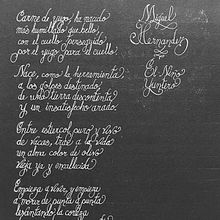 Carne de yugo, ha nacido
más humillado que bello,
con el cuello perseguido
por el yugo para el cuello.
Nace, como la herramienta
a los golpes destinado,
de una tierra descontenta
y un insatisfecho arado.
Entre estiercol puro y vivo
de vacas, trae a la vida
un alma color de olivo
vieja ya y encallecida
Empieza a vivir, y empieza
a morir de punta a punta
levantando la corteza
Miguel
Hernandez
El Niño
Yuntero